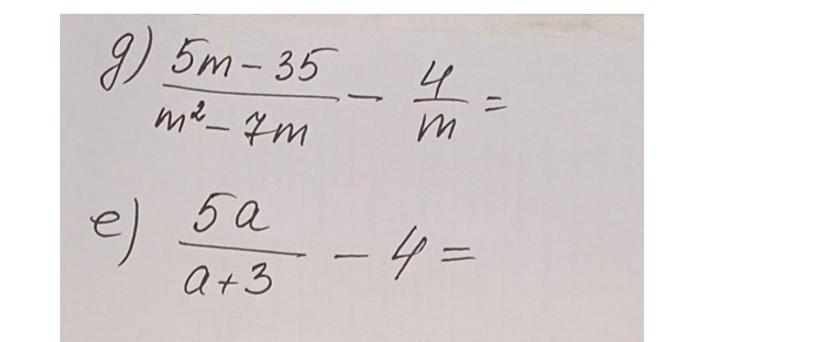 д) (5m - 35)/(m² - 7m) - 4/m =
е) 5a/(a + 3) - 4 =